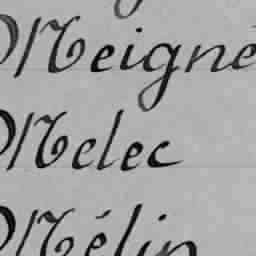 Meigné
Melec
Mélin